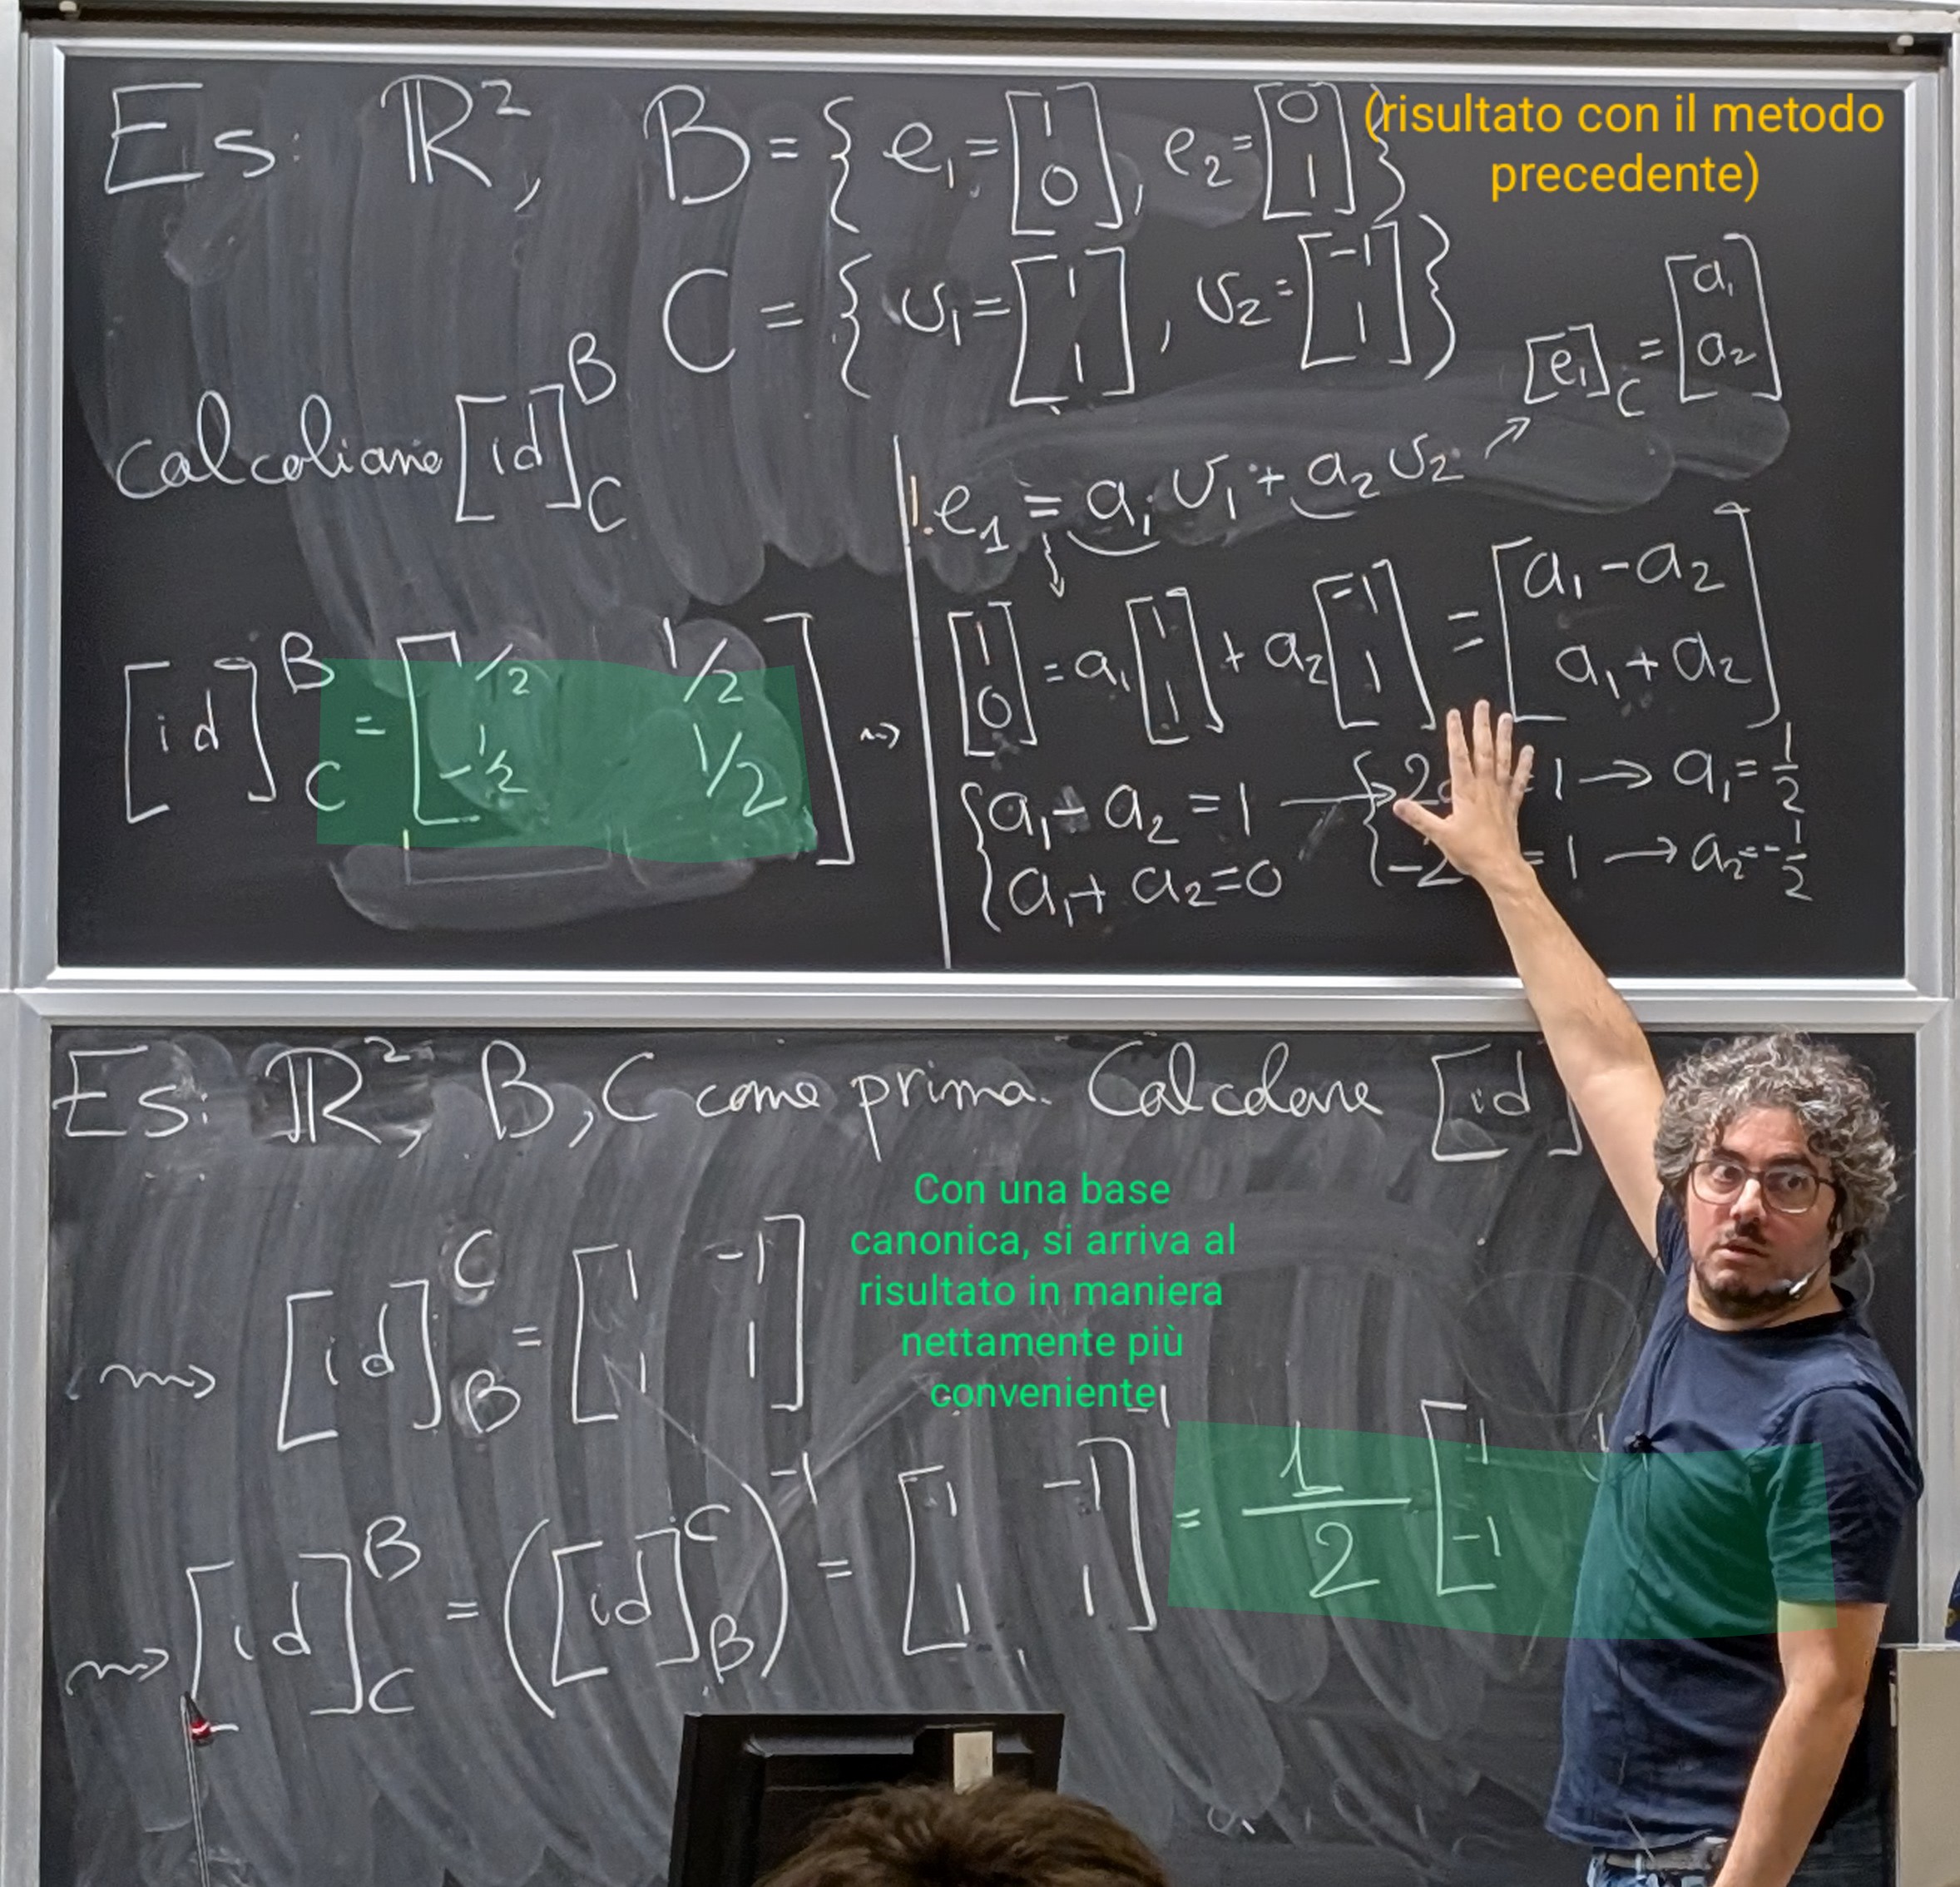 Es: ℝ², B = { e₁ = [1 0], e₂ = [0 1] }
(risultato con il metodo
precedente)
C = { v₁ = [1 1], v₂ = [-1 1] }
calcoliamo [id]^B_C
[e₁]_C = [a₁ a₂]
1. e₁ = a₁ v₁ + a₂ v₂
[1 0] = a₁ [1 1] + a₂ [-1 1] = [a₁ - a₂ a₁ + a₂]
[id]^B_C = [1/2 1/2
-1/2 1/2]
{ a₁ - a₂ = 1 → { 2 = 1 → a₁ = 1/2
a₁ + a₂ = 0 -2 = 1 → a₂ = -1/2
Es: ℝ², B, C come prima. Calcolare [id]
Con una base
canonica, si arriva al
risultato in maniera
nettamente più
conveniente
[id]^C_B = [1 -1
1 1]
[id]^B_C = ([id]^C_B)^-1 = [1 -1
1 1]^-1 = 1/2 [1 1
-1